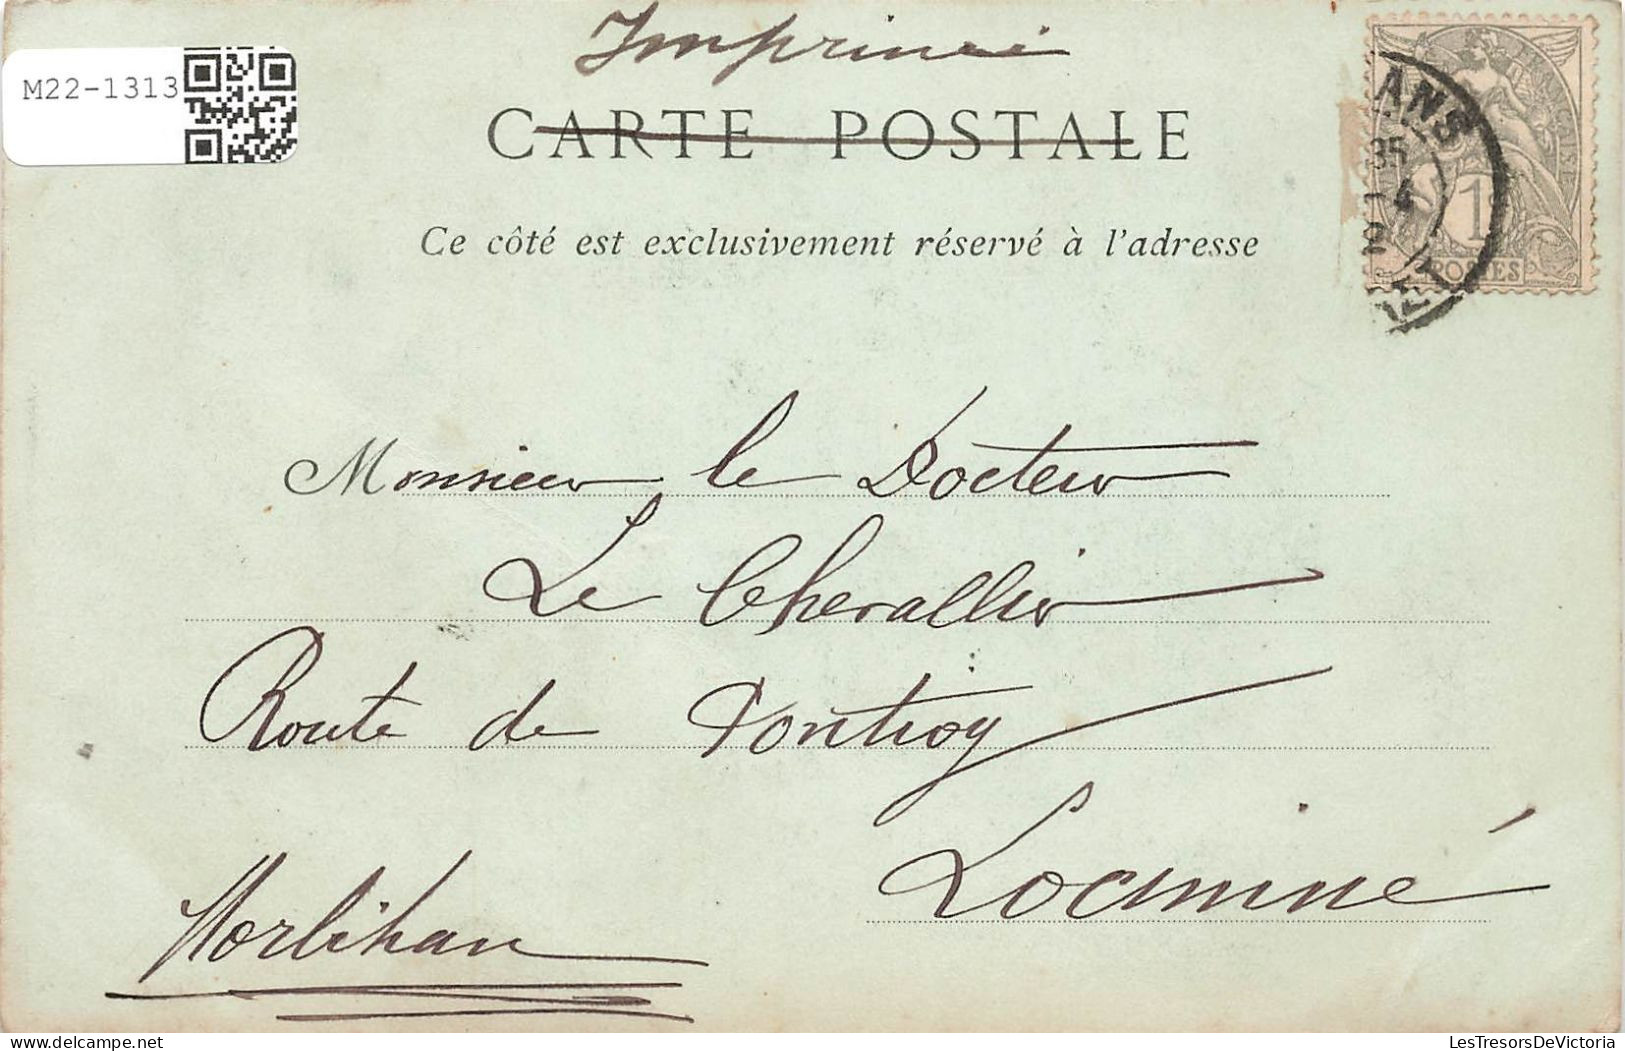 M22-1313
Imprimé
CARTE POSTALE
Ce côté est exclusivement réservé à l'adresse
FRANÇAISE
1
POSTES
ANS
Monsieur le Docteur
Le Chevallier
Route de Pontivy
Locminé
Morbihan
LesTresorsDeVictoria
www.delcampe.net